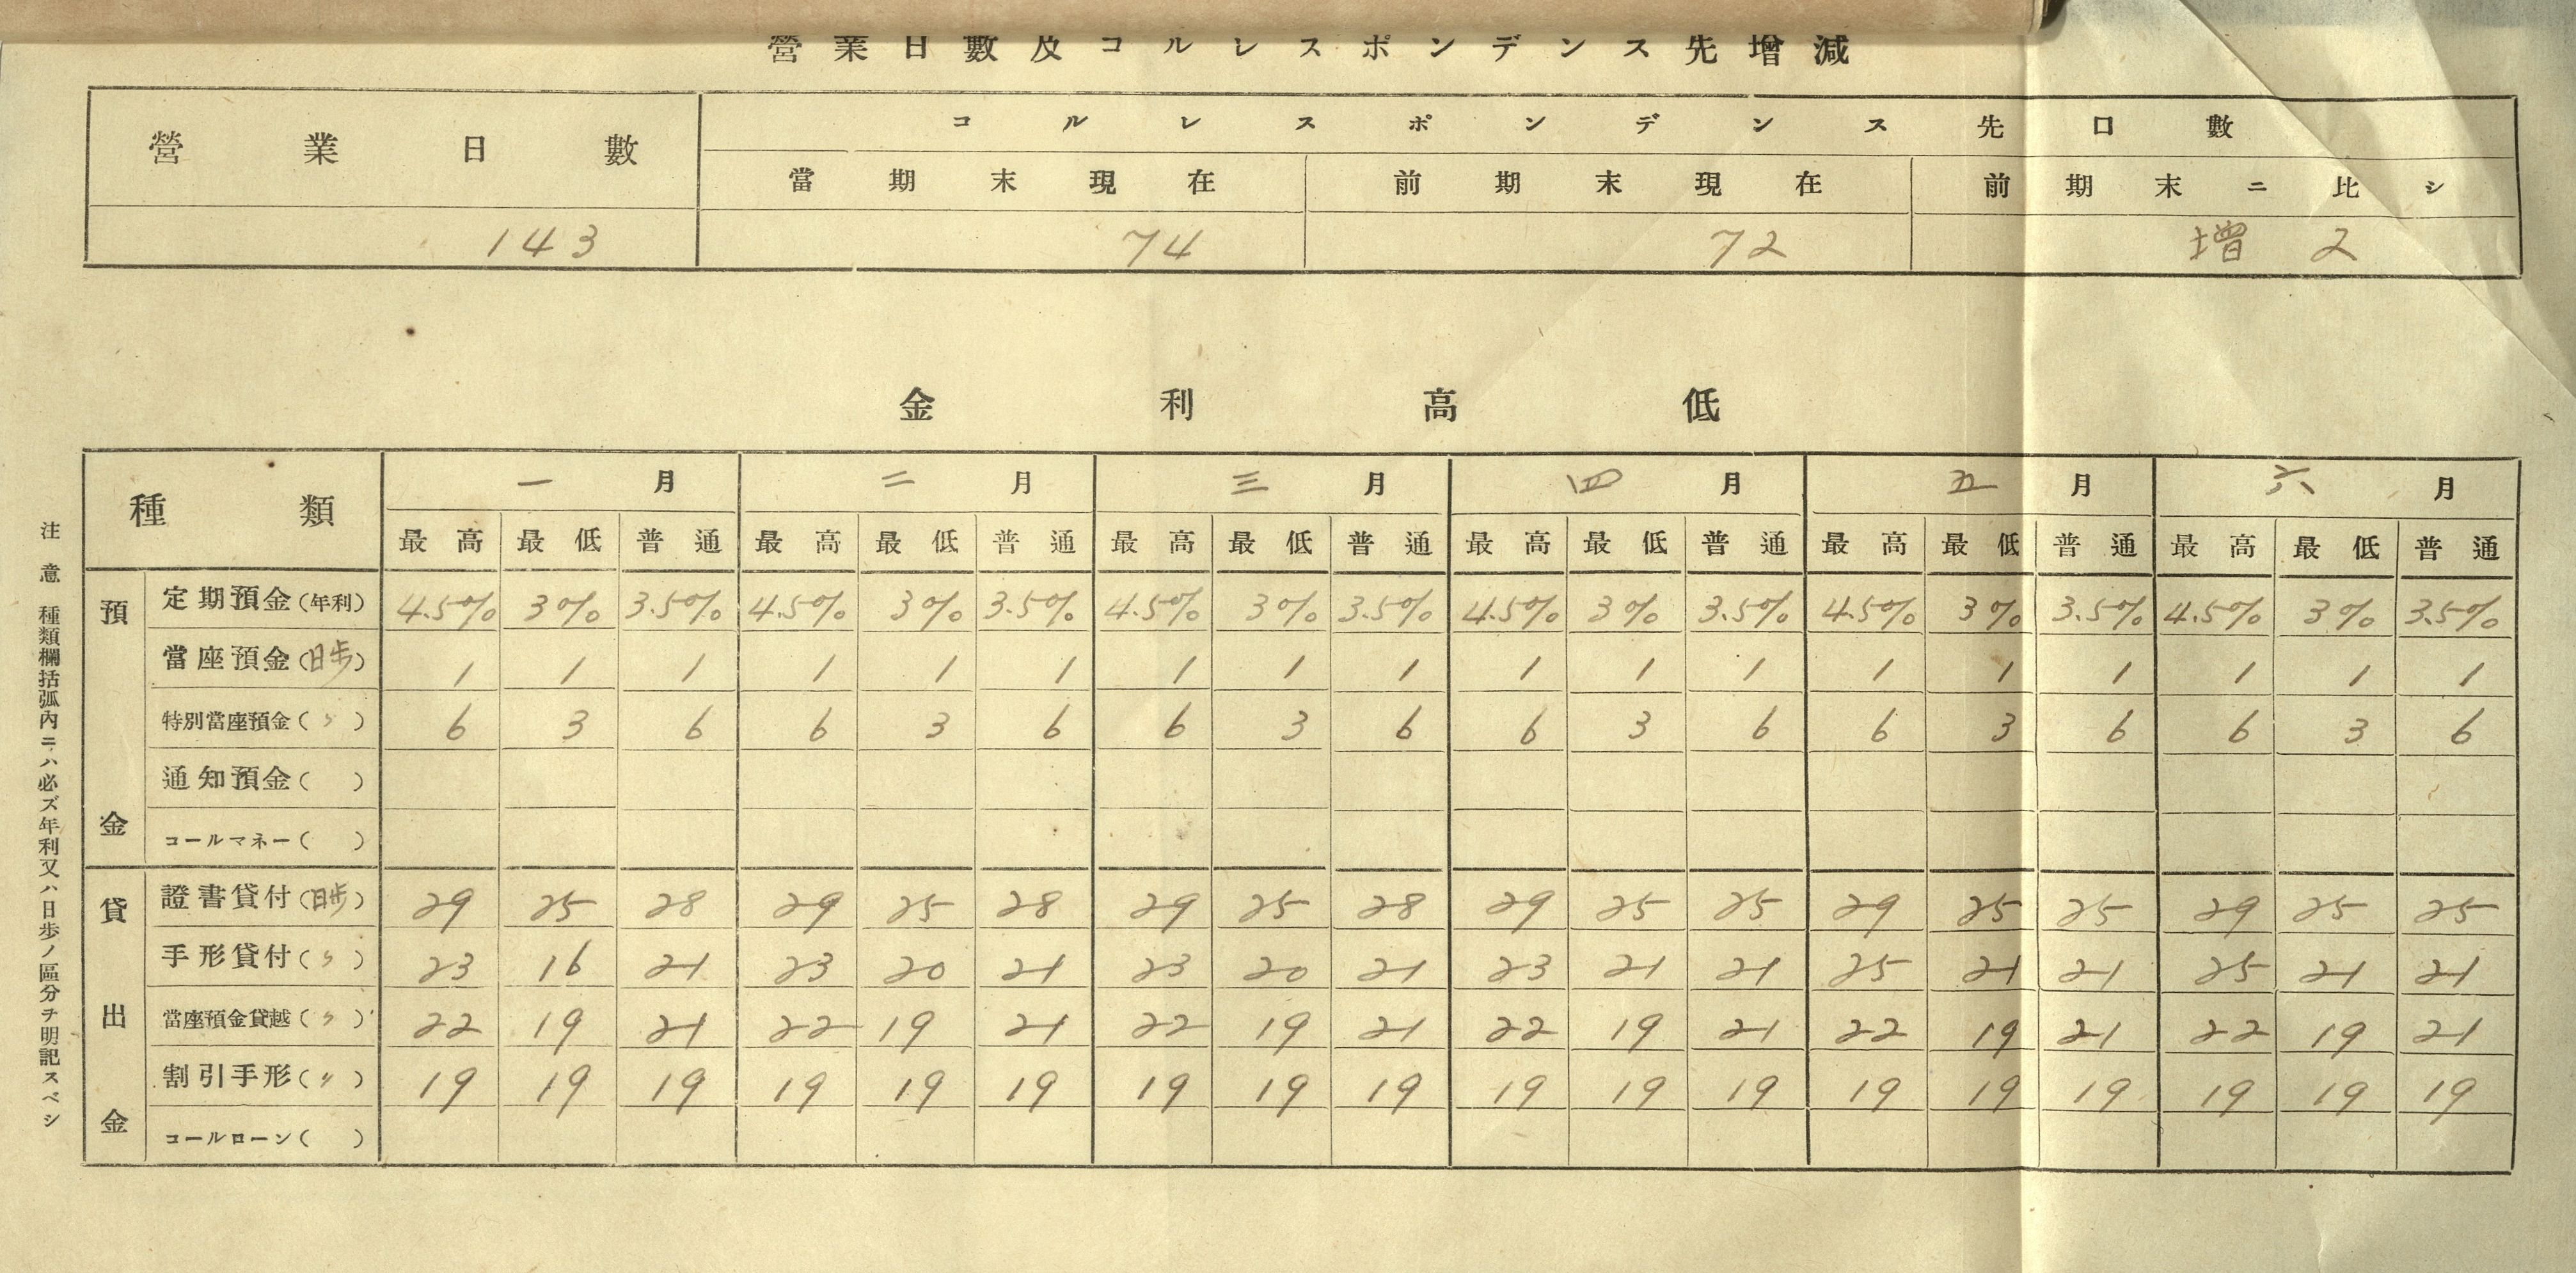 營業日數及コルレスポンデンス先增減
營業日數 コルレスポンデンス先口數
當期末現在 前期末現在 前期末ニ比シ
143 74 72 増 2
金利高低
種類 一月 二月 三月 四月 五月 六月
最高 最低 普通 最高 最低 普通 最高 最低 普通 最高 最低 普通 最高 最低 普通 最高 最低 普通
預金
定期預金(年利) 4.5% 3% 3.5% 4.5% 3% 3.5% 4.5% 3% 3.5% 4.5% 3% 3.5% 4.5% 3% 3.5% 4.5% 3% 3.5%
當座預金(日歩) 1 1 1 1 1 1 1 1 1 1 1 1 1 1 1 1 1 1
特別當座預金(〃) 6 3 6 6 3 6 6 3 6 6 3 6 6 3 6 6 3 6
通知預金( )
コールマネー( )
貸出金
證書貸付(日歩) 29 25 28 29 25 28 29 25 28 29 25 25 29 25 25 29 25 25
手形貸付(〃) 23 16 21 23 20 21 23 20 21 23 21 21 25 21 21 25 21 21
當座預金貸越(〃) 22 19 21 22 19 21 22 19 21 22 19 21 22 19 21 22 19 21
割引手形(〃) 19 19 19 19 19 19 19 19 19 19 19 19 19 19 19 19 19 19
コールローン( )
注意 種類欄括弧內ニハ必ズ年利又ハ日歩ノ區分ヲ明記スベシ